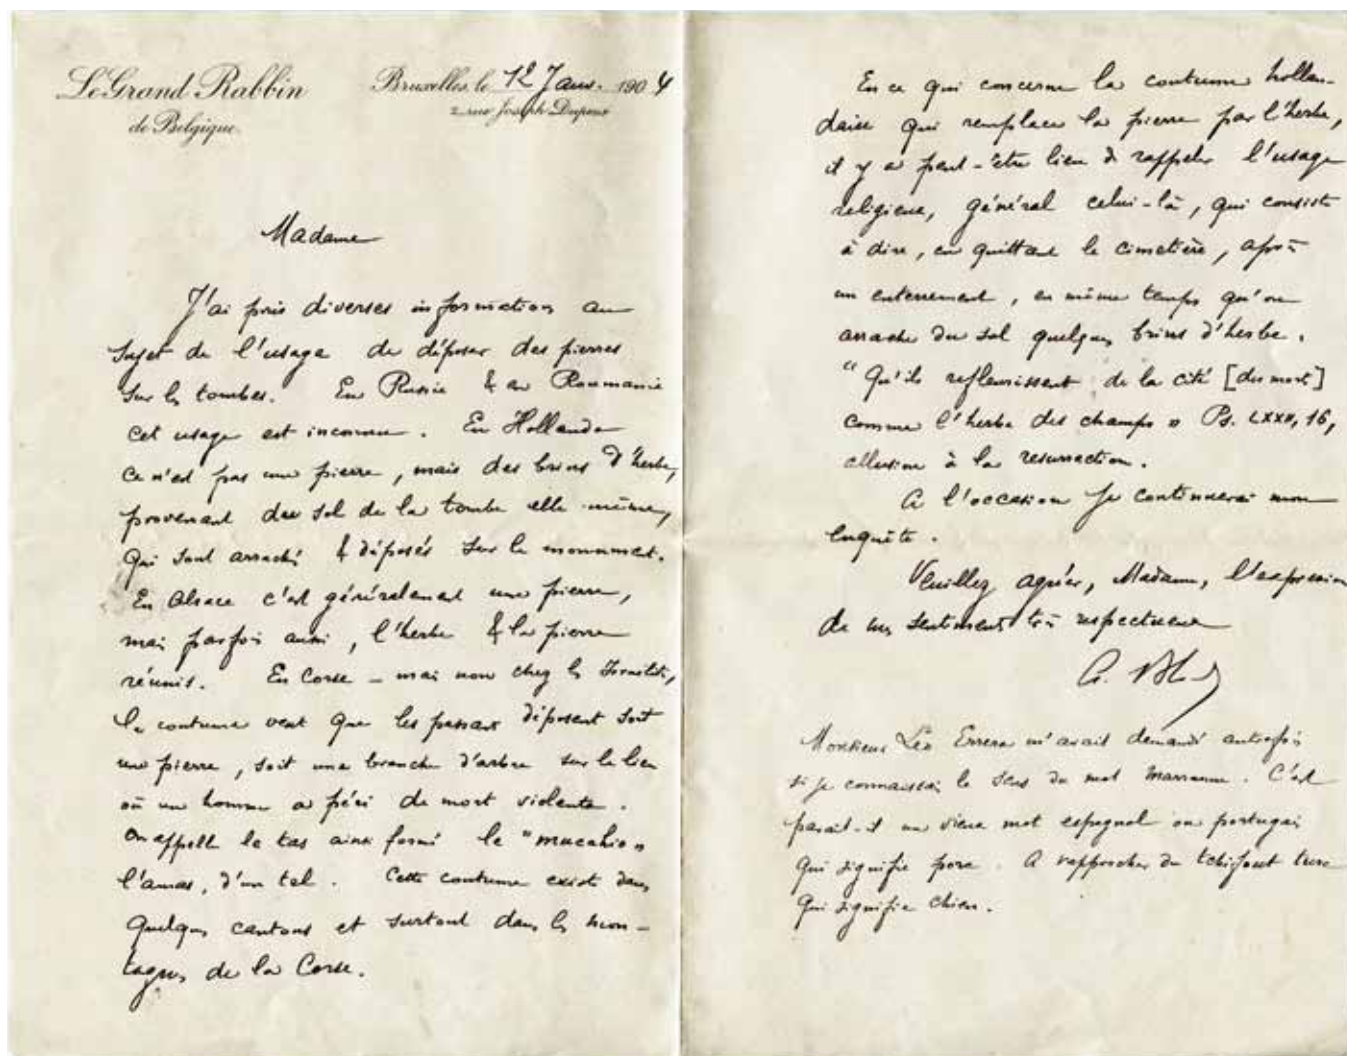 Le Grand Rabbin
de Belgique.
Bruxelles, le 12 Janv. 1904
2, rue Joseph Dupont
Madame
J'ai pris diverses informations au
sujet de l'usage de déposer des pierres
sur les tombes. En Russie & en Roumanie
cet usage est inconnu. En Hollande
ce n'est pas une pierre, mais des brins d'herbe,
provenant du sol de la tombe elle-même,
qui sont arrachés & déposés sur le monument.
En Alsace c'est généralement une pierre,
mais parfois aussi, l'herbe & la pierre
réunis. En Corse – mais non chez les Israélites,
la coutume veut que les passants déposent soit
une pierre, soit une branche d'arbre sur le lieu
où un homme a péri de mort violente.
On appelle le tas ainsi formé le "mucchio"
l'amas, d'un tel. Cette coutume existe dans
quelques cantons et surtout dans les mon-
tagnes de la Corse.
En ce qui concerne la coutume hollan-
daise qui remplace la pierre par l'herbe,
il y a peut-être lieu de rappeler l'usage
religieux, général celui-là, qui consiste
à dire, en quittant le cimetière, après
un enterrement, en même temps qu'on
arrache du sol quelques brins d'herbe.
"Qu'ils refleurissent de la cité [des morts]
comme l'herbe des champs" Ps. LXXII, 16,
allusion à la résurrection.
A l'occasion je continuerai mon
enquête.
Veuillez agréer, Madame, l'expression
de mes sentiments très respectueux
A. Bloch
Monsieur Léo Errera m'avait demandé autrefois
si je connaissais le sens du mot Marranne. C'est
parait-il un vieux mot espagnol ou portugais
qui signifie porc. A rapprocher du tchifout turc
qui signifie chien.